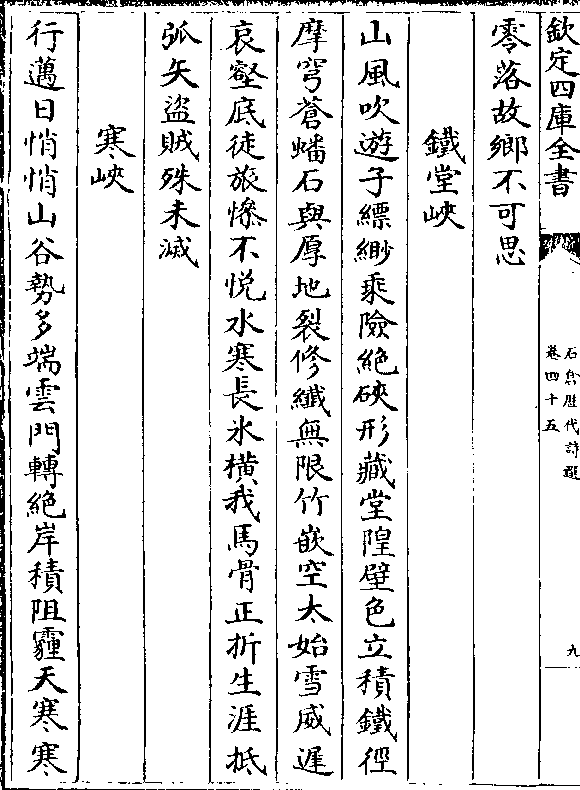 欽定四庫全書
石倉歴代詩選
卷四十五
九
零落故鄉不可思
鐵堂峽
山風吹遊子縹緲乘險絶硤形藏堂隍壁色立積鐵徑
摩穹蒼蟠石與厚地裂修纖無限竹嵌空太始雪威遲
哀壑底徒旅慘不悦水寒長氷橫我馬骨正折生涯抵
弧矢盜賊殊未滅
寒峽
行邁日悄悄山谷勢多端雲門轉絶岸積阻霾天寒寒